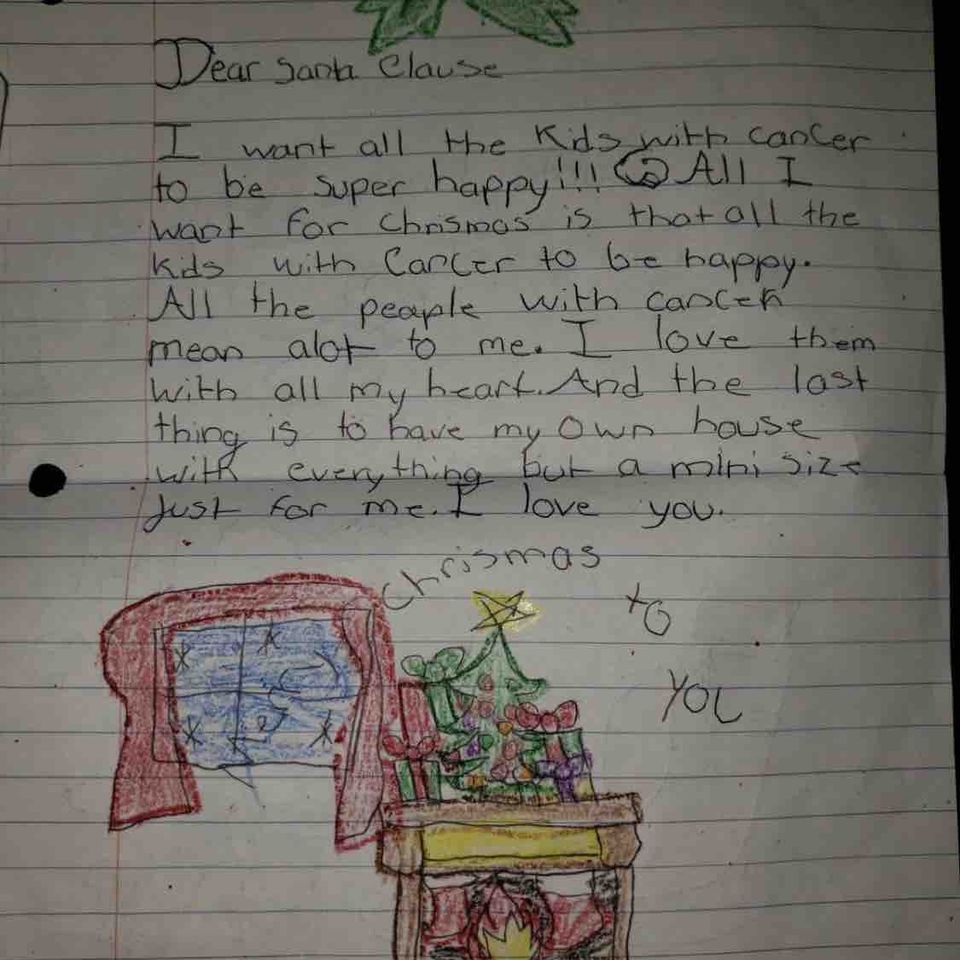 Dear Santa Clause
I want all the Kids with cancer
to be super happy!!! All I
want for Chrismas is that all the
Kids with Cancer to be happy.
All the peaple with cancer
mean alot to me. I love them
with all my heart. And the last
thing is to have my own house
with everything but a mini size
Just for me. I love you.
Chrismas
to
you